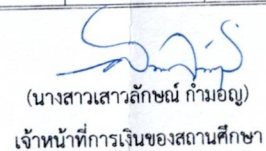 (นางสาวเสาวลักษณ์ กำมอญ)
เจ้าหน้าที่การเงินของสถานศึกษา